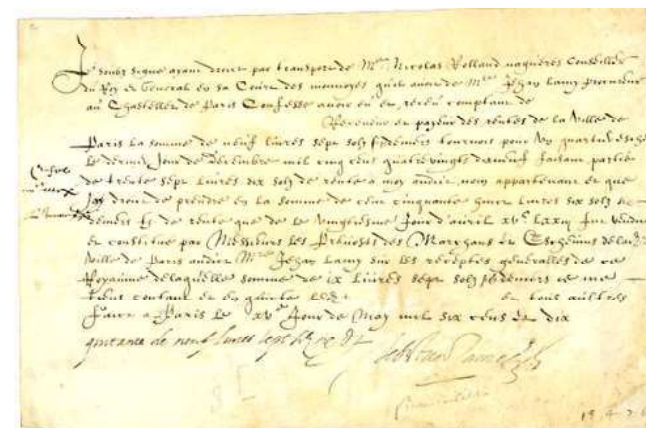 Je soubz signé ayant droict par transport de Me Nicolas Rolland naguères Conseiller
du Roy et General en sa Court des monnoyes qui avoit de Me Jehan Lamy procureur
au Chastellet de Paris Confesse avoir eu et receu comptant de
Receveur et payeur des rentes de la Ville de
Paris la somme de neuf livres sept solz six deniers tournois pour ung quartier escheu
le dernier Jour de Decembre mil cinq cens quatre vingtz faisant partie
de trente sept livres dix solz de rente a moy appartenant et que
Jay droict de prendre en la somme de cent cinquante livres six solz
deniers ts de rente que des le vingtiesme Jour d'avril xvc lxxiii fut vendue
et constitué par Messieurs les Prevost des Marchans et Eschevins de lad
Ville de Paris audict Me Jehan Lamy sur les receptes generalles de ce
Royaume de laquelle somme de ix livres sept solz deniers ts me
tiens contant et en quicte led et tous aultres
Faict a Paris le xve Jour de May mil six cens et dix
quictance de neuf livres sept